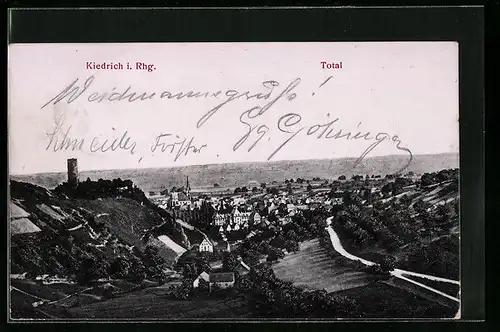 Kiedrich i. Rhg. Total
Weidmannsgruß!
Schneider, Förster Gg. Göhsing